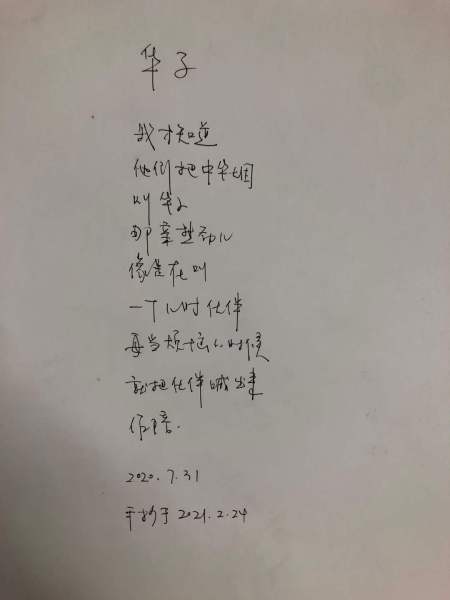 华子
我才知道
他们把中华烟
叫华子
那亲热劲儿
像是在叫
一个儿时伙伴
每当烦恼的时候
就把伙伴喊出来
作陪.
2020.7.31
手抄于2021.2.24